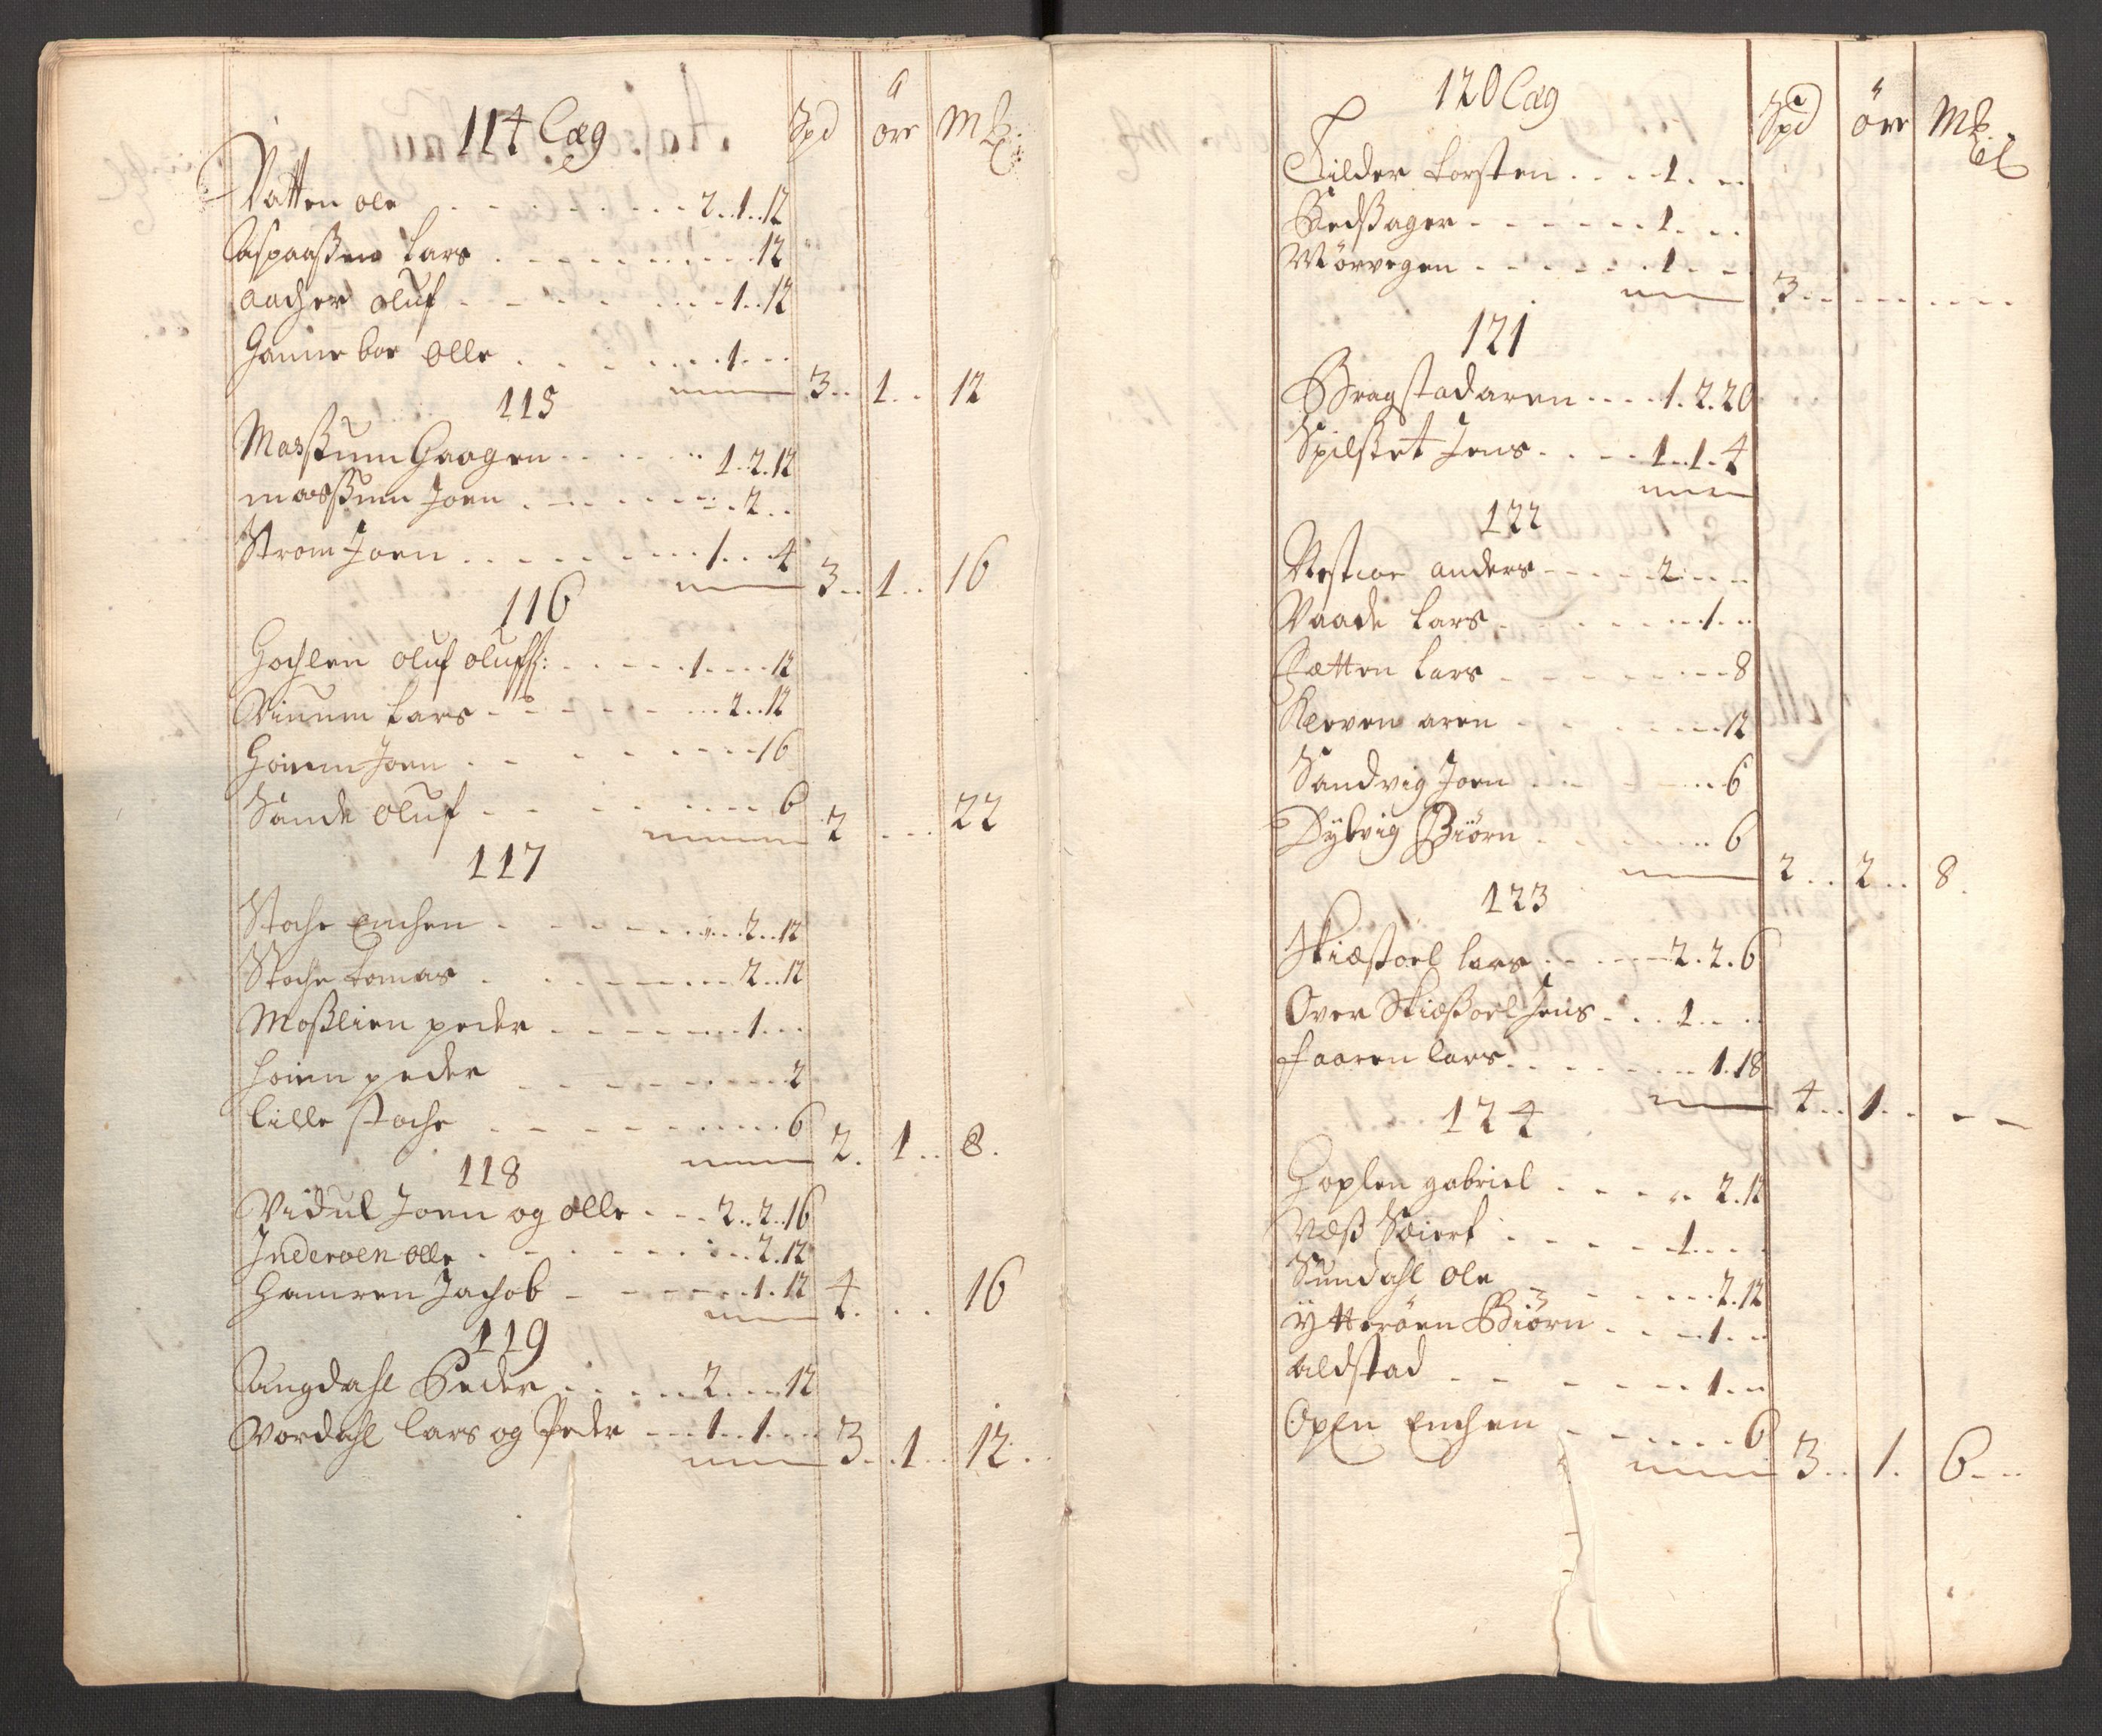 114 Læg Spd öre Mk
Vatten ole 2..1..12
Aspaaßen Lars 12
Aacher oluf 1..12
Hammerboe Olle 1
3..1..12
115
Masßum Haagen 1.2.12
massum Joen 2
Strøm Joen 1...4
3..1..16
116
oluf olufs: 1...12
Vinum Lars 2..12
Hoiem Joen 16
Sande oluf 6
2...22
117
Stoche Enchen 2..12
Stoche tomas 2..12
Moßlien peder 1
hoien peder 2
lille stoche 6
2.1..8.
118
Vidul Joen og olle 2..2..16
Inderoen olle 2.12
Hamren Jachob 1.12
4...16
119
Langdahl Peder 2...12
Vordahl lars og Peder 1..1
3..1..12
120 Læg Spd öre Mk
Filder torsten 1
Bedßager 1
Mörvegen 1
3
121
Bragstadaren 1.2.20
Spilset Jens 1.1.4
122
Nestvoe anders 2
Vaade Lars 1
Setten Lars 8
Kleven aren 12
Sandvig Joen 6
Dybvig Biörn 6
2..2..8.
123
Skiæßoel lars 2.2.6
Over Skiæßoel Jens 1
Faaren lars 1.18
4..1..
124
Hoplen gabriel 2.12
Næß Sivert 1
Sundahl ole 2.12
Ytteröen Biörn 1
aldstad 1
Oplen Enchen 6
3..1.6